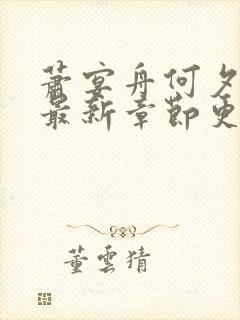 萧宴舟何夕
最新章節更
董雲猜